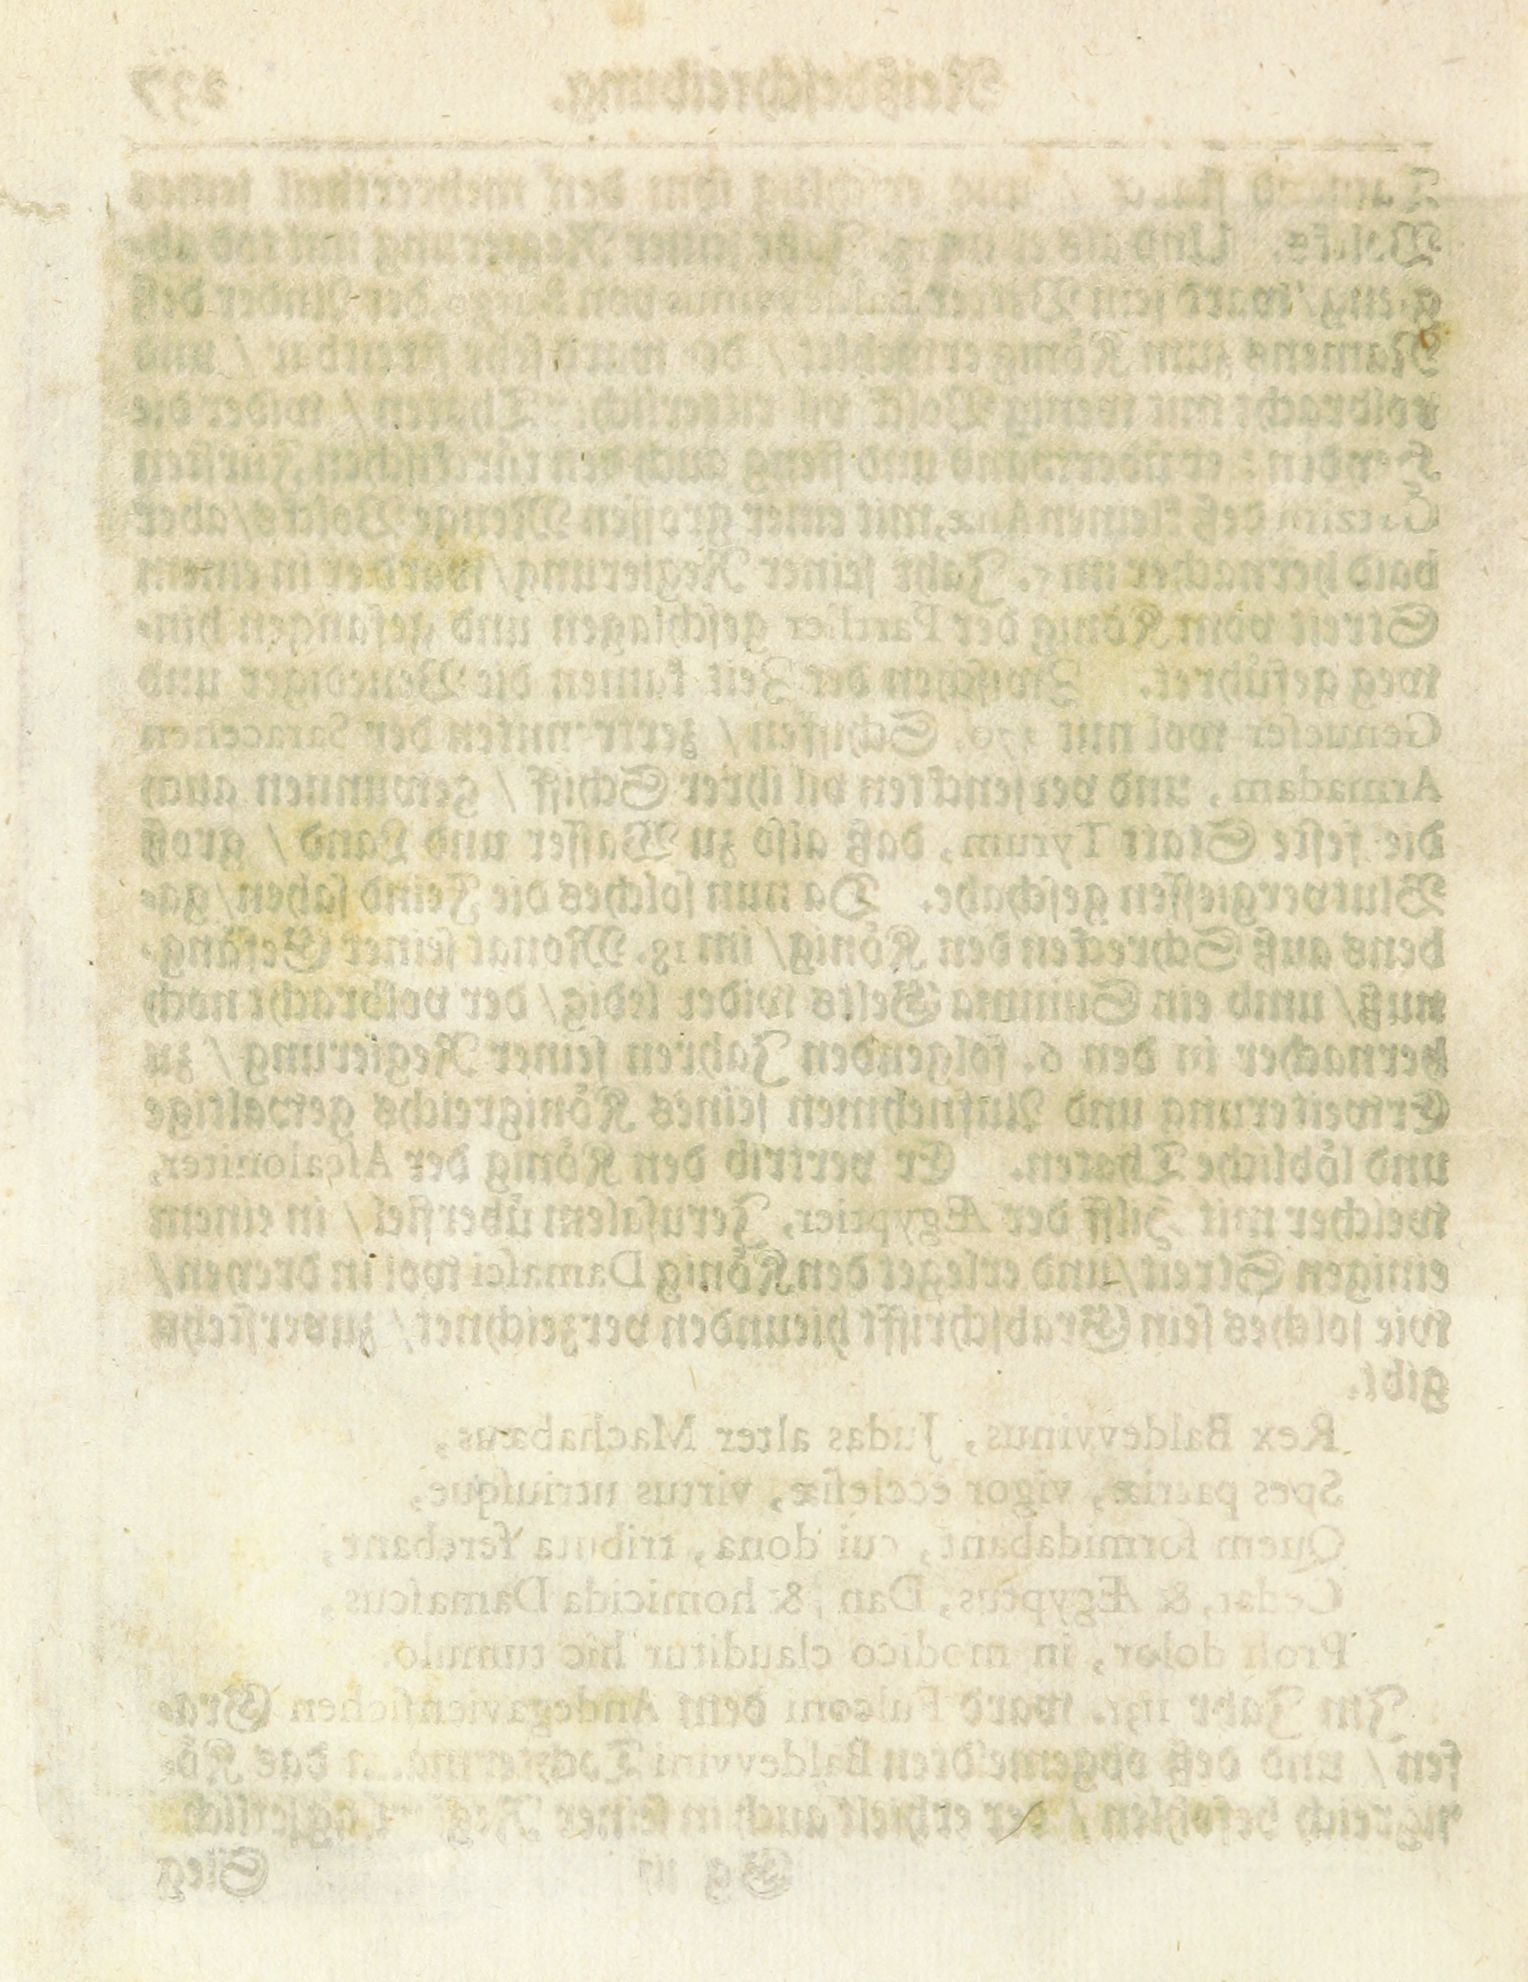 Reißbeschreibung. 237
Tausend starck / und erschlug ihm den mehrertheil seines
Volcks. Und als er im 19. Jahr seiner Regierung mit tod ab-
gieng / ward sein Vetter Baldevvinus von Burgo, der Ander deß
Namens zum König erwehlet / so ward sehr streitbar / und
volbracht mit wenig Volck vil ritterlich Thaten / wider die
Heyden: er überwand und fieng auch den türckischen Fürsten
deß kleinen Asiæ, mit einer grossen Menge Volckes / aber
bald hernacher im 5. Jahr seiner Regierung / ward er in einem
Streit vom König der Parther geschlagen und gefangen hin-
weg geführet. Zwischen der Zeit kamen die Venediger und
Genueser wol mit 170. Schiffen / zertrennten der Saracenen
Armadam, und versenckten vil ihrer Schiff / gewunnen auch
die feste Statt Tyrum, daß also zu Wasser und Land / groß
Blutvergiessen geschahe. Da nun solches die Feind sahen / ga-
bens auß Schrecken den König / im 18. Monat seiner Gefäng-
nuß / umb ein Summa Gelts wider ledig / der volbracht noch
hernacher in den 6. folgenden Jahren seiner Regierung / zu
Erweiterung und Aufnehmen seines Königreichs gewaltige
und löbliche Thaten. Er vertrib den König der Ascaloniter,
welcher mit Hilff der Ægyptier, Jerusalem überfiel / in einem
einigen Streit / und erleget den König Damasci wol in dreyen /
wie solches sein Grabschrifft hieunden verzeichnet / zuverstehn
gibt.
Rex Baldevvinus, Judas alter Machabæus,
Spes patriæ, vigor ecclesiæ, virtus utriusque,
Quem formidabant, cui dona, tributa ferebant,
Cedar, & Ægyptus, Dan, & homicida Damascus,
Proh dolor, in modico clauditur hîc tumulo.
Im Jahr 1131. ward Fulconi dem Andegaviensischen Gra-
fen / und deß obgemeldten Baldevvini Tochtermann das Kö-
nigreich befohlen / der erhielt auch in seiner Regierung herrlich
Gg iij Sieg